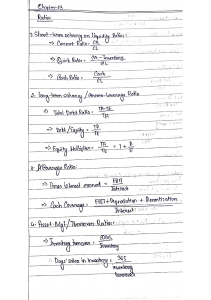 Chapter-03
Ratios
1. Short-term solvency or Liquidity Ratios:
⇒ Current Ratio = CA/CL
⇒ Quick Ratio = CA - Inventory/CL
⇒ Cash Ratio = Cash/CL
2. Long-term solvency / Leverage Ratio
⇒ Total Debt Ratio = TA-TE/TA
⇒ Debt/Equity = TD/TE
⇒ Equity Multiplier = TA/TE = 1 + D/E
3. Coverage Ratio:
⇒ Times Interest earned = EBIT/Interest
⇒ Cash Coverage = EBIT + Depreciation + Amortization/Interest
4. Asset Mgt / Turnover Ratios:
⇒ Inventory turnover = COGS/Inventory
∴ Days' sales in Inventory = 365/Inventory turnover